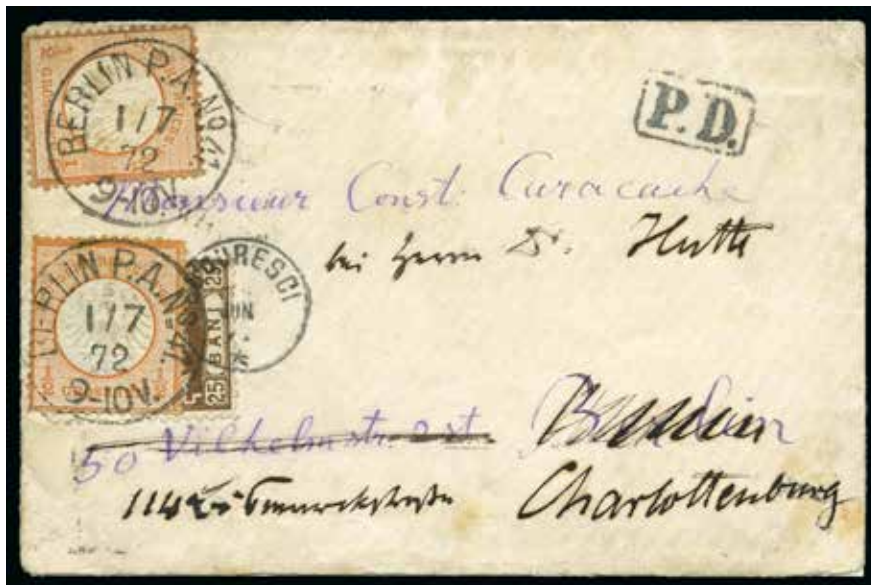 BERLIN P.A. No 41.
1/7
72
9-10V.
P.D.
Monsieur Const. Curacache
bei Herrn Dr. Hutte
BERLIN P.A. No 41.
1/7
72
9-10V.
URESCI
UN
25 BANI 25
50 Vilhelmstr.
114 Bismarckstraße Charlottenburg